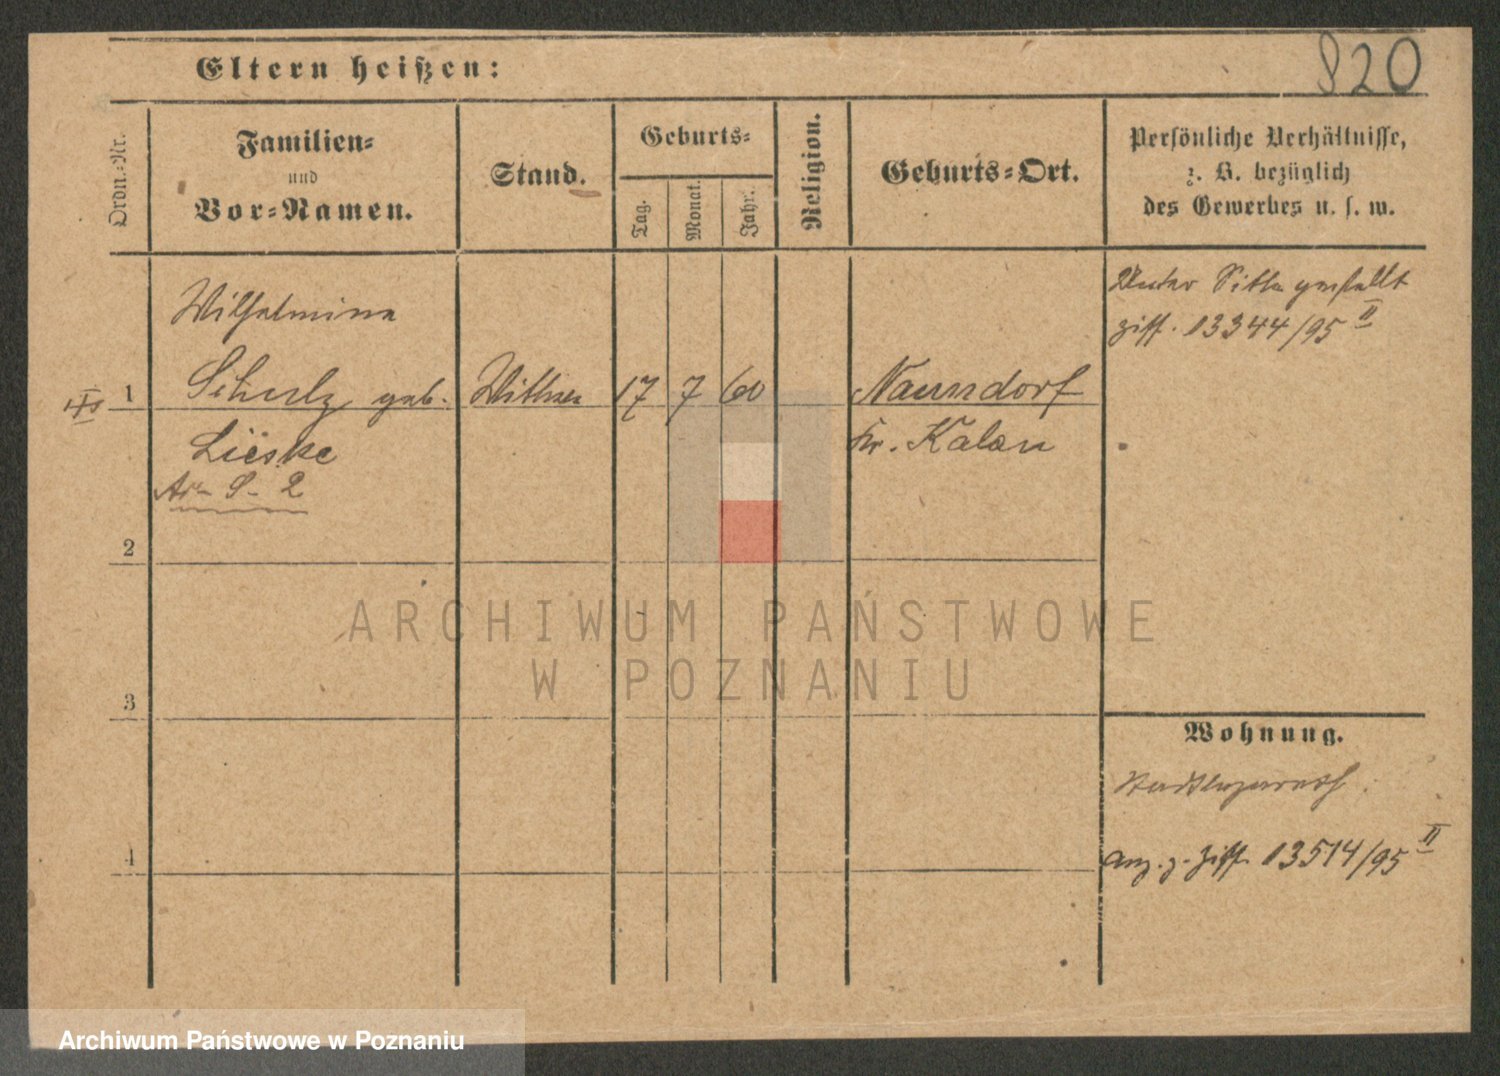 820
Eltern heißen:
Ordn.-Nr.
Familien-
und
Vor-Namen.
Stand.
Geburts-
Tag.
Monat.
Jahr.
Religion.
Geburts-Ort.
Persönliche Verhältnisse,
z. B. bezüglich
des Gewerbes u. s. w.
Wilhelmine
1 Schulz geb. Wittwe 17 7 60 Naundorf
Lieske Kr. Kalau
Unter Sitte gestellt
ziff. 13344/95 II
2
3
4
Wohnung.
anz. z. Ziff. 13514/95 II
ARCHIWUM PAŃSTWOWE
W POZNANIU
Archiwum Państwowe w Poznaniu